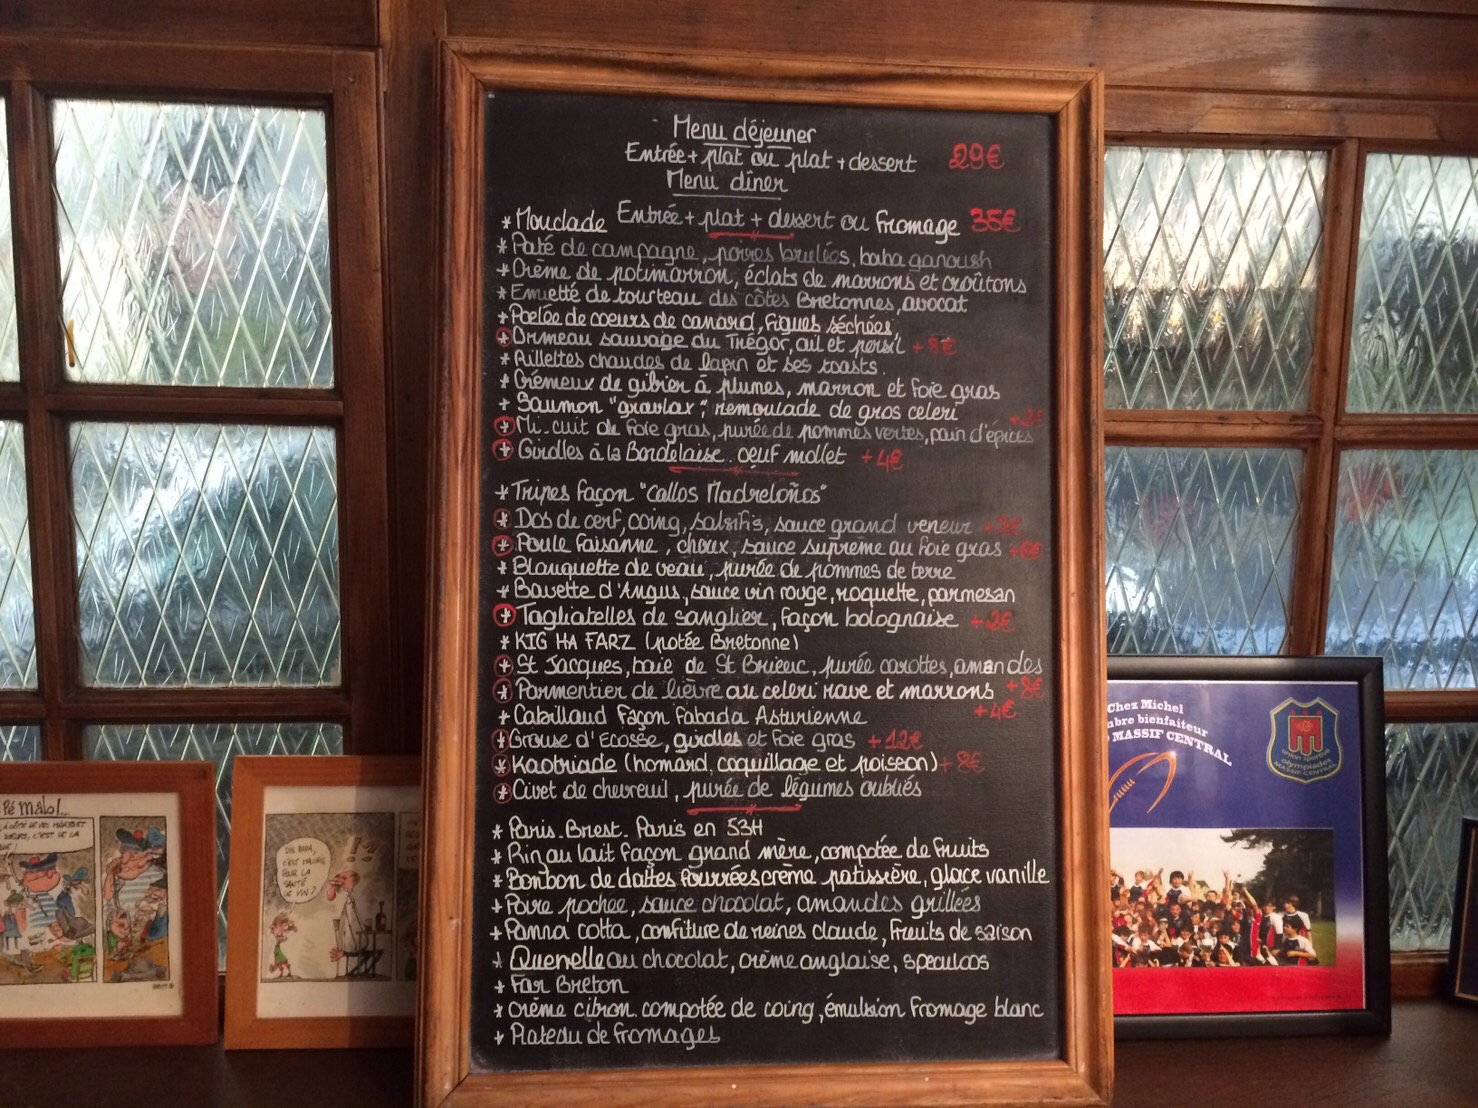 Menu déjeuner
Entrée + plat ou plat + dessert 29€
Menu dîner
Entrée + plat + dessert ou fromage 35€
* Mouclade
* Paté de campagne, poires brulées, baba ganoush
* Crème de potimarron, éclats de marrons et croûtons
* Emietté de tourteau des côtes Bretonnes, avocat
* Poelée de coeurs de canard, figues séchées,
* Ormeau sauvage du Trégor, ail et persil + 8€
* Rillettes chaudes de lapin et ses toasts.
* Crémeux de gibier à plumes, marron et foie gras
+ Saumon "gravlax", remoulade de gros celeri
* Mi-cuit de foie gras, purée de pommes vertes, pain d'épices
* Girolles à la Bordelaise. oeuf mollet + 4€
* Tripes façon "callos Madreloños"
* Dos de cerf, coing, salsifis, sauce grand veneur
* Poule faisanne, choux, sauce suprême au foie gras
* Blanquette de veau, purée de pommes de terre
* Bavette d'Angus, sauce vin rouge, roquette, parmesan
* Tagliatelles de sanglier, façon bolognaise
* KIG HA FARZ (potée Bretonne)
* St Jacques, baie de St Brieuc, purée carottes, amandes
* Parmentier de lièvre au celeri rave et marrons + 8€
+ Cabillaud façon fabada Asturienne + 4€
* Grouse d'Ecosse, girolles et foie gras + 12€
* Kaotriade (homard, coquillage et poisson) + 8€
* Civet de chevreuil, purée de légumes oubliés
* Paris. Brest. Paris en 53H
* Riz au lait façon grand mère, compotée de fruits
* Bonbon de dattes fourrées crème patissière, glace vanille
+ Poire pochée, sauce chocolat, amandes grillées
+ Panna cotta, confiture de reines claude, fruits de saison
* Quenelle au chocolat, crème anglaise, speculoos
* Far Breton
* crème citron. compotée de coing, émulsion fromage blanc
+ Plateau de fromages
Pé Malo!...
DIS PAPA,
C'EST MAUVAIS
POUR LA
SANTÉ
LE VIN?
Chez Michel
bre bienfaiteur
MASSIF CENTRAL
union sportive
olympiades
MASSIF CENTRAL